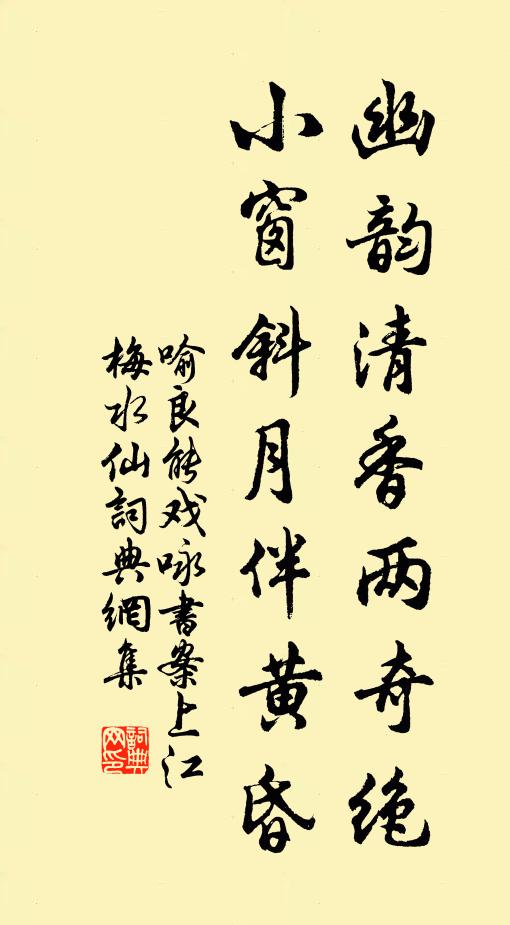 幽韵清香两奇绝
小窗斜月伴黄昏
喻良能戏咏書案上江
梅水仙詞典網集
詞典
网印